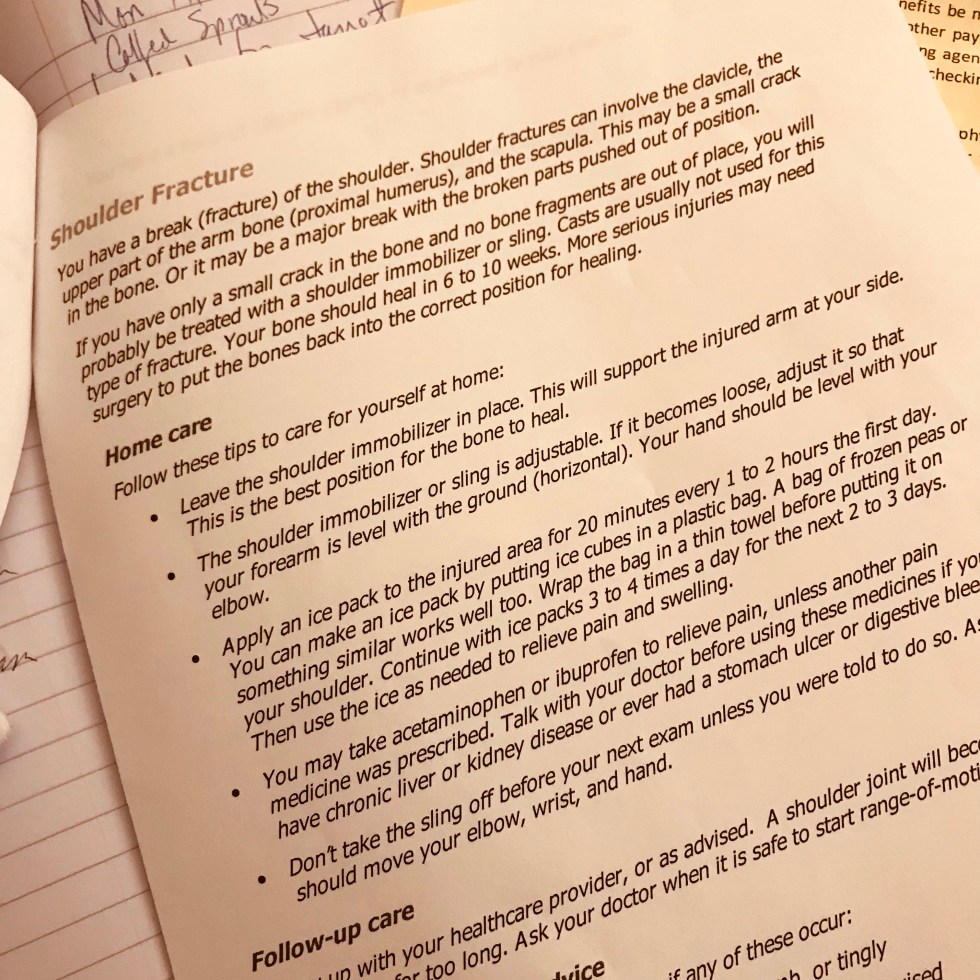 Mon
Called Sprouts
Jarrott
nefits be n
other pay
ng agen
checkin
Shoulder Fracture
You have a break (fracture) of the shoulder. Shoulder fractures can involve the clavicle, the
upper part of the arm bone (proximal humerus), and the scapula. This may be a small crack
in the bone. Or it may be a major break with the broken parts pushed out of position.
If you have only a small crack in the bone and no bone fragments are out of place, you will
probably be treated with a shoulder immobilizer or sling. Casts are usually not used for this
type of fracture. Your bone should heal in 6 to 10 weeks. More serious injuries may need
surgery to put the bones back into the correct position for healing.
Home care
Follow these tips to care for yourself at home:
• Leave the shoulder immobilizer in place. This will support the injured arm at your side.
This is the best position for the bone to heal.
• The shoulder immobilizer or sling is adjustable. If it becomes loose, adjust it so that
your forearm is level with the ground (horizontal). Your hand should be level with your
elbow.
• Apply an ice pack to the injured area for 20 minutes every 1 to 2 hours the first day.
You can make an ice pack by putting ice cubes in a plastic bag. A bag of frozen peas or
something similar works well too. Wrap the bag in a thin towel before putting it on
your shoulder. Continue with ice packs 3 to 4 times a day for the next 2 to 3 days.
Then use the ice as needed to relieve pain and swelling.
• You may take acetaminophen or ibuprofen to relieve pain, unless another pain
medicine was prescribed. Talk with your doctor before using these medicines if yo
have chronic liver or kidney disease or ever had a stomach ulcer or digestive blee
• Don't take the sling off before your next exam unless you were told to do so. As
should move your elbow, wrist, and hand.
Follow-up care
up with your healthcare provider, or as advised. A shoulder joint will bec
for too long. Ask your doctor when it is safe to start range-of-moti
vice
if any of these occur:
or tingly